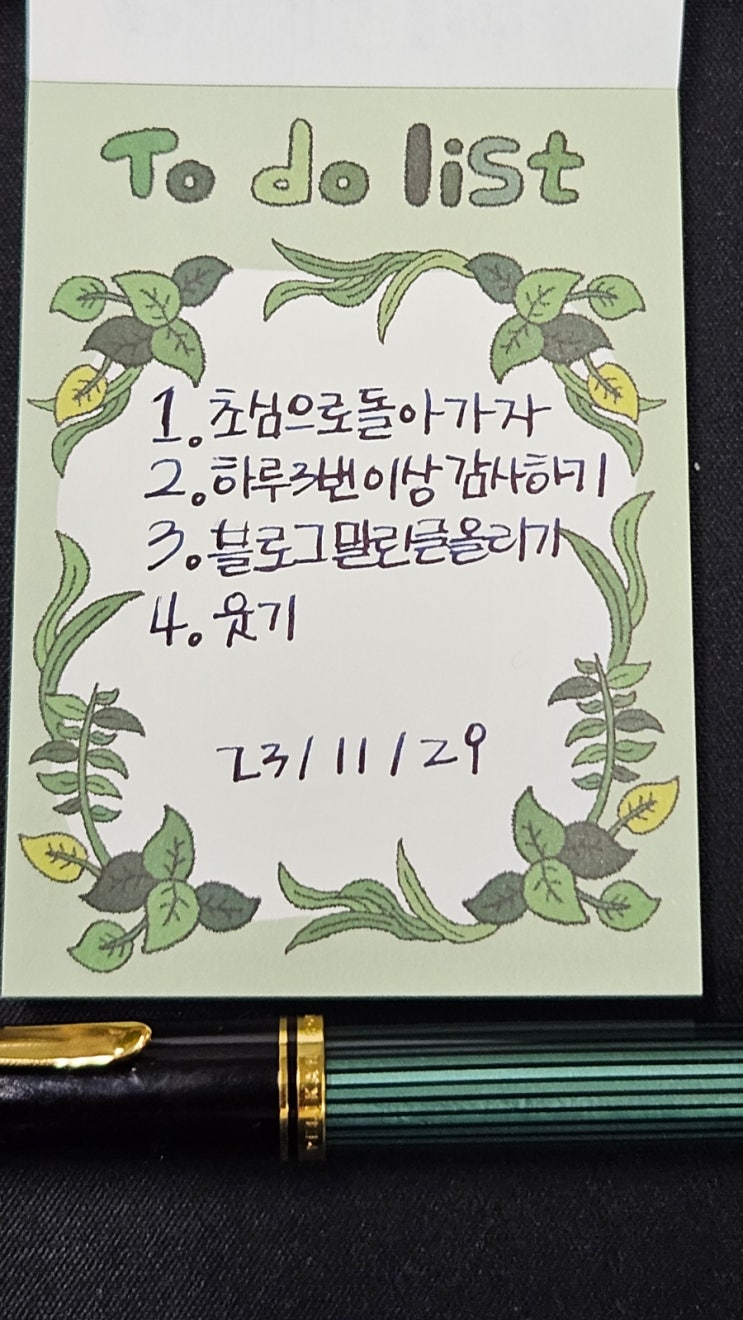 To do list
1. 초심으로돌아가자
2. 하루3번이상 감사하기
3. 블로그밀린글올리기
4. 웃기
23/11/29